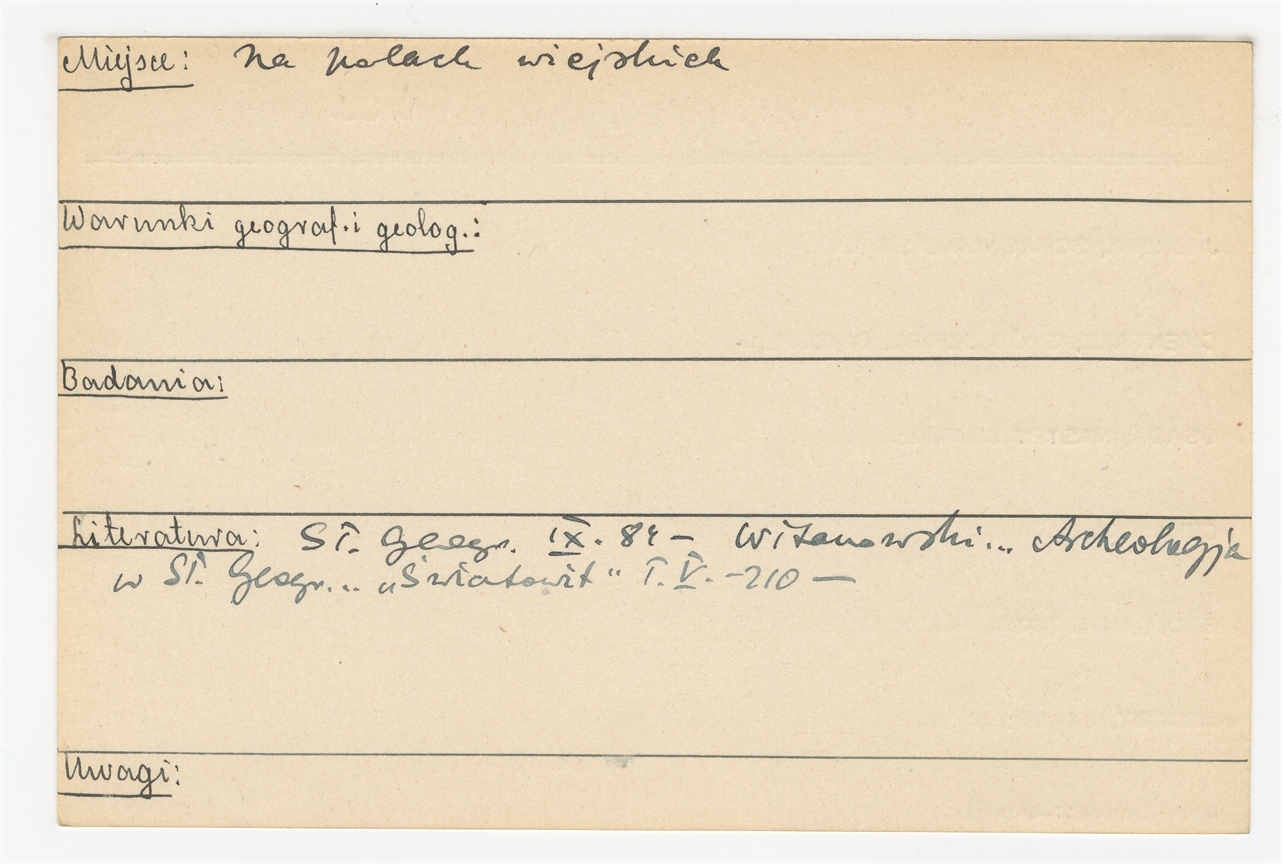 Miejsce: Na polach wiejskich
Warunki geograf. i geolog.:
Badania:
Literatura: Sł. Geogr. IX. 84 – Witanowski... Archeologja
w Sł. Geogr... „Światowit" T. V. – 210 —
Uwagi: